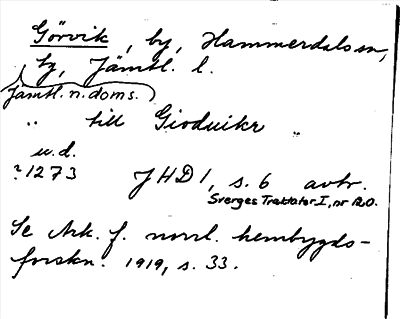 Görvik, by, Hammerdals sn,
tg, Jämtl. l.
Jämtl. n. doms.
" till Gioduikr "
u.d.
?1273 JHD I, s. 6 avtr.
Sverges Traktater I, nr 120.
Se Ark. f. norrl. hembygds-
forskn. 1919, s. 33.